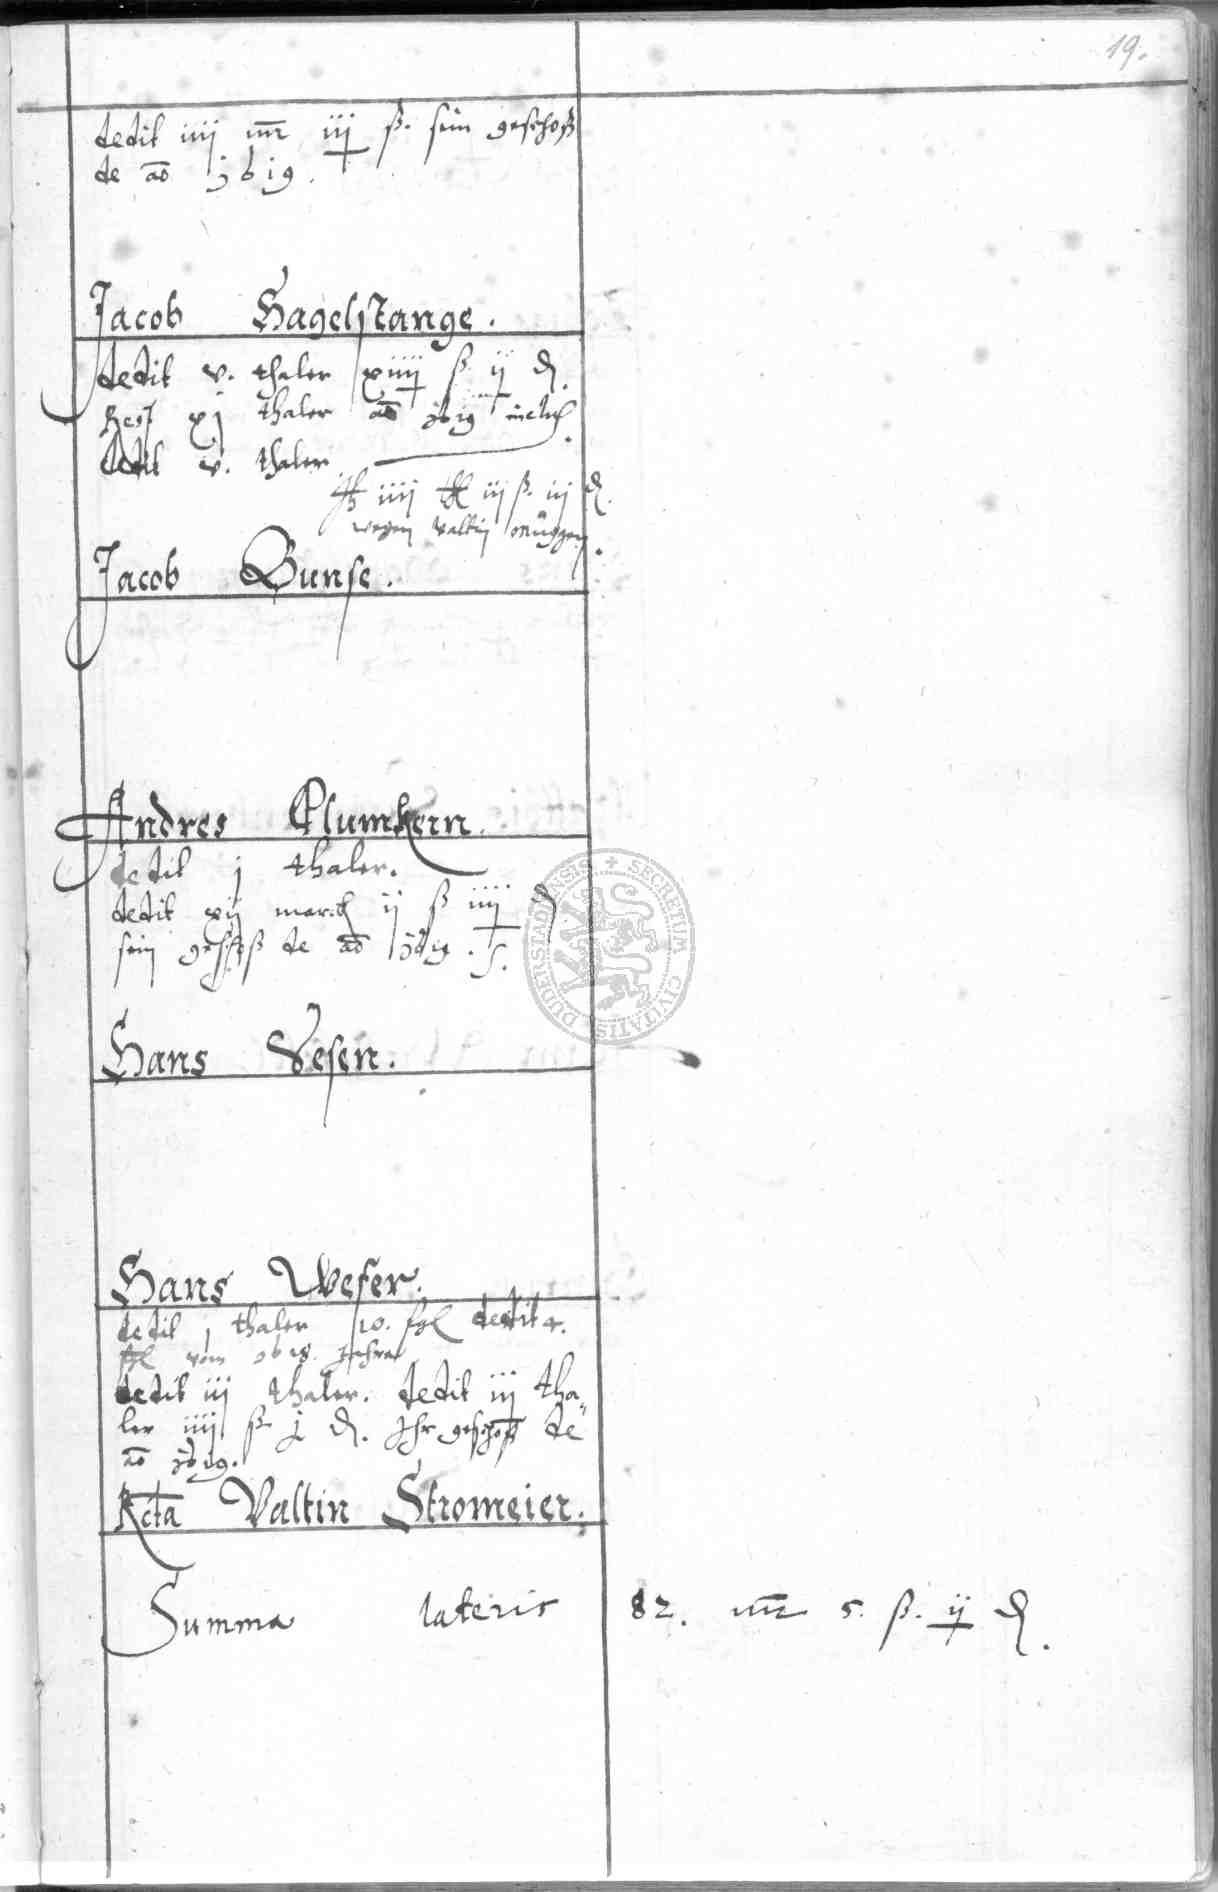 19.
dedit iiij mr iij ß. sein geschoß
de ao 1619.
Jacob Hagelstange.
dedit v. thaler xiiij ß ij d.
Rest xj thaler ao 1619 inclus.
dedit v. thaler
iiij iij ß. iij d.
wegen Valtin
Jacob Bunse.
Andres Plumkern.
dedit j thaler.
dedit xij marck ij ß iiij d
sein geschoß de ao 1619.
Hans Vesen.
Hans Weser.
dedit j thaler 10. fgl dedit 4.
fgl vom 1618. Jahre
dedit iij thaler. dedit iij tha
ler iiij ß j d. Ihr geschoß de
ao 1619.
Rcta Valtin Stromeier.
Summa lateris 82. mr 5. ß. ij d.
SECRETUM CIVITATIS DUDERSTADIENSIS